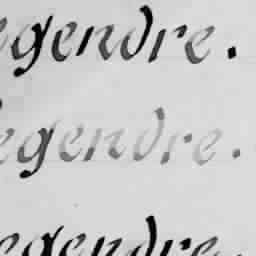 egendre.
egendre.
egendre.